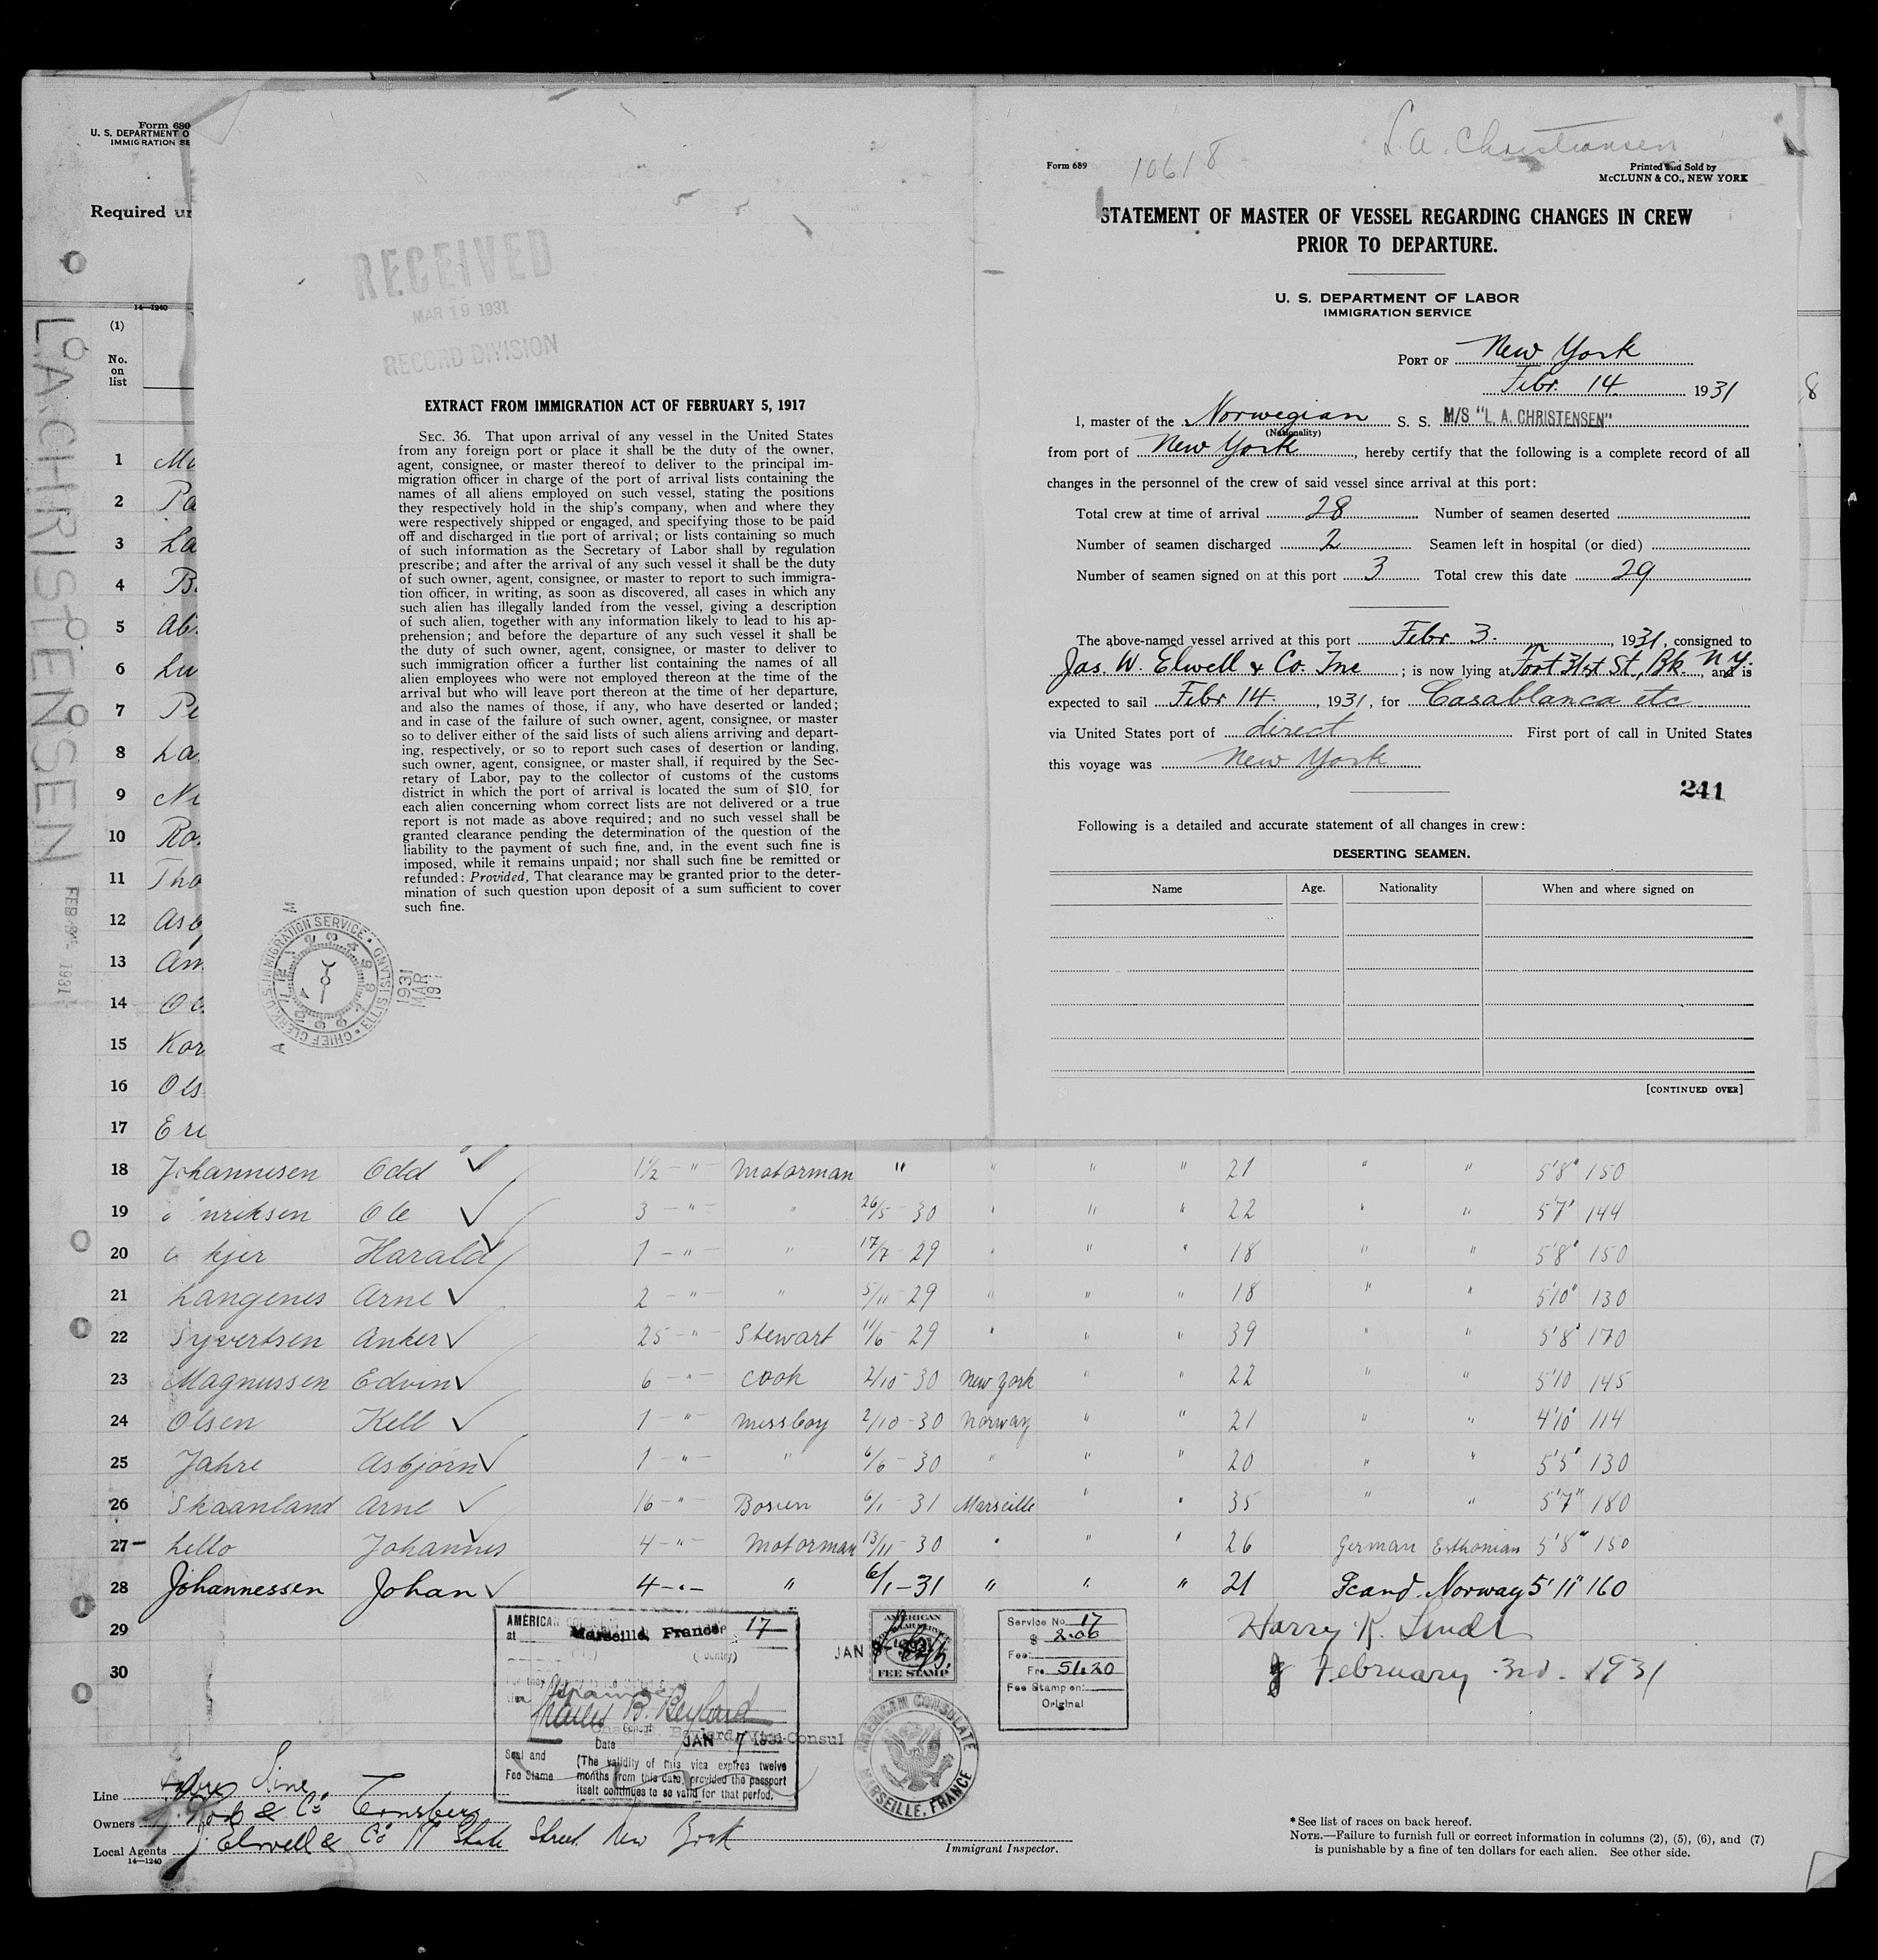 Form 680
U. S. DEPARTMENT O
IMMIGRATION SE
Required un
14—1240
(1)
No.
on
list
L.A. CHRISTENSEN
FEB 1931
RECEIVED
MAR 19 1931
RECORD DIVISION
EXTRACT FROM IMMIGRATION ACT OF FEBRUARY 5, 1917
SEC. 36. That upon arrival of any vessel in the United States
from any foreign port or place it shall be the duty of the owner,
agent, consignee, or master thereof to deliver to the principal im-
migration officer in charge of the port of arrival lists containing the
names of all aliens employed on such vessel, stating the positions
they respectively hold in the ship's company, when and where they
were respectively shipped or engaged, and specifying those to be paid
off and discharged in the port of arrival; or lists containing so much
of such information as the Secretary of Labor shall by regulation
prescribe; and after the arrival of any such vessel it shall be the duty
of such owner, agent, consignee, or master to report to such immigra-
tion officer, in writing, as soon as discovered, all cases in which any
such alien has illegally landed from the vessel, giving a description
of such alien, together with any information likely to lead to his ap-
prehension; and before the departure of any such vessel it shall be
the duty of such owner, agent, consignee, or master to deliver to
such immigration officer a further list containing the names of all
alien employees who were not employed thereon at the time of the
arrival but who will leave port thereon at the time of her departure,
and also the names of those, if any, who have deserted or landed;
and in case of the failure of such owner, agent, consignee, or master
so to deliver either of the said lists of such aliens arriving and depart-
ing, respectively, or so to report such cases of desertion or landing,
such owner, agent, consignee, or master shall, if required by the Sec-
retary of Labor, pay to the collector of customs of the customs
district in which the port of arrival is located the sum of $10 for
each alien concerning whom correct lists are not delivered or a true
report is not made as above required; and no such vessel shall be
granted clearance pending the determination of the question of the
liability to the payment of such fine, and, in the event such fine is
imposed, while it remains unpaid; nor shall such fine be remitted or
refunded: Provided, That clearance may be granted prior to the deter-
mination of such question upon deposit of a sum sufficient to cover
such fine.
CHIEF CLERK U.S. IMMIGRATION SERVICE • ELLIS ISLAND
1931
MAR
19
L. A. Christensen
Form 689
10618
Printed and Sold by
McCLUNN & CO., NEW YORK
STATEMENT OF MASTER OF VESSEL REGARDING CHANGES IN CREW
PRIOR TO DEPARTURE.
U. S. DEPARTMENT OF LABOR
IMMIGRATION SERVICE
PORT OF New York
Febr. 14. 1931
I, master of the Norwegian S. S. M/S "L. A. CHRISTENSEN"
(Nationality)
from port of New York, hereby certify that the following is a complete record of all
changes in the personnel of the crew of said vessel since arrival at this port:
Total crew at time of arrival 28 Number of seamen deserted
Number of seamen discharged 2 Seamen left in hospital (or died)
Number of seamen signed on at this port 3 Total crew this date 29
The above-named vessel arrived at this port Febr 3. 1931, consigned to
Jas. W. Elwell & Co. Inc ; is now lying at Foot 31st St, Bk. N.Y., and is
expected to sail Febr 14., 1931, for Casablanca etc
via United States port of direct First port of call in United States
this voyage was New York
241
Following is a detailed and accurate statement of all changes in crew:
DESERTING SEAMEN.
Name Age. Nationality When and where signed on
[CONTINUED OVER]
8
1 Mi
2 Pa
3 La
4 B.
5 Ab
6 Lu
7 Pe
8 La
9 Ni
10 Ro
11 Tho
12 Asb
13 Am
14 Ol
15 Kar
16 Ols
17 Eri
18 Johannesen Odd 1½ — " — Motorman " " " " 21 " " 5'8" 150
19 nriksen Ole 3 — " — " 26/5 - 30 " " " 22 " " 5'7" 144
20 kjer Harald 1 — " — " 17/7 - 29 " " " 18 " " 5'8" 150
21 Langenes Arne 2 — " — " 5/11 - 29 " " " 18 " " 5'10" 130
22 Syvertsen Anker 25 — " — Stewart 11/6 - 29 " " " 39 " " 5'8" 170
23 Magnussen Edvin 6 — " — Cook 2/10 - 30 New York " " 22 " " 5'10 145
24 Olsen Kell 1 — " — Messboy 2/10 - 30 Norway " " 21 " " 4'10" 114
25 Jahre Asbjörn 1 — " — " 6/6 - 30 " " " 20 " " 5'5" 130
26 Skaanland Arne 16 — " — Bosun 6/1 - 31 Marseille " " 35 " " 5'7" 180
27 — Lello Johannes 4 — " — Motorman 13/11 - 30 " " " 26 German Esthonian 5'8" 150
28 Johannessen Johan 4 — " — " 6/1 - 31 " " " 21 Scand. Norway 5'11" 160
29
30
AMERICAN
at Marseille, France. 17
(Country)
Charles B. Beylard
Vice Consul
Date JAN 7 1931
Seal and
Fee Stamp
(The validity of this visa expires twelve
months from this date, provided the passport
itself continues to be valid for that period.
JAN
AMERICAN
FEE STAMP
AMERICAN CONSULATE
MARSEILLE, FRANCE
Service No. 17
$ 2.00
Fee:
Frs 51.20
Fee Stamp on:
Original
Harry K.
February 3rd - 1931
Line Line
Owners & Co Tonsberg
Local Agents J. Elwell & Co 17 State Street New York
14—1240
Immigrant Inspector.
* See list of races on back hereof.
NOTE.—Failure to furnish full or correct information in columns (2), (5), (6), and (7)
is punishable by a fine of ten dollars for each alien. See other side.